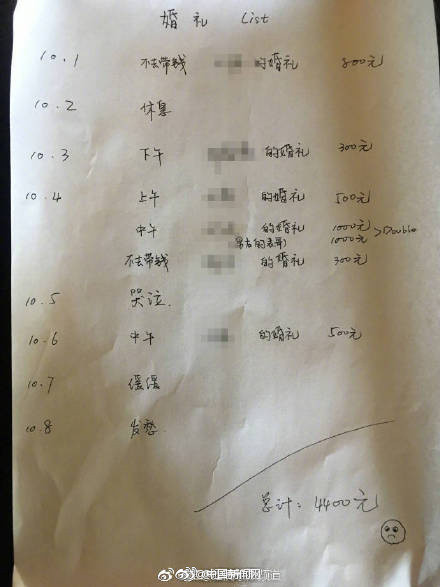 婚礼 List
10.1 不去带钱 的婚礼 800元
10.2 休息
10.3 下午 的婚礼 300元
10.4 上午 的婚礼 500元
中午 的婚礼 1000元
男友的表哥 1000元 >Double
不去带钱 的婚礼 300元
10.5 哭泣.
10.6 中午 的婚礼 500元
10.7 缓缓
10.8 发愁.
总计: 4400元
@中国新闻网